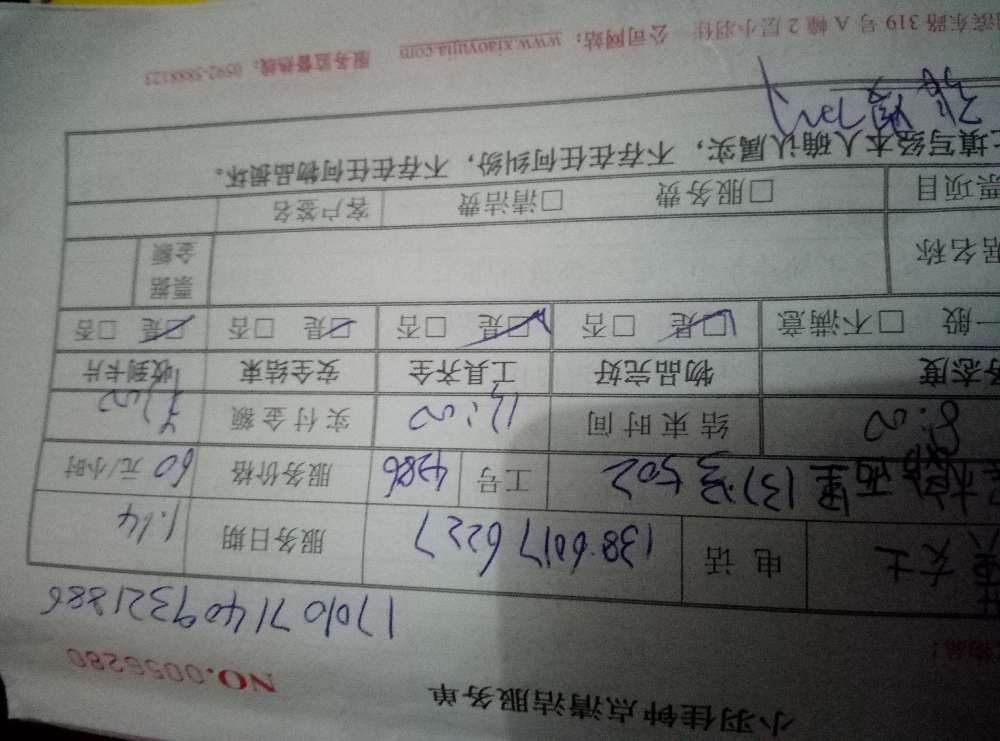 小羽佳钟点清洁服务单
NO.0056280
物品！
1701071409321886
女士 电话 13860176227 服务日期 1.14
西里137号502 工号 4286 服务价格 60元/小时
8:00 结束时间 11:00 实付金额
态度 物品完好 工具齐全 安全结束 收到卡片
一般 □不满意 ☑是 □否 ☑是 □否 ☑是 □否 ☑是 □否
名称 票据金额
票项目 □服务费 □清洁费 客户签名
填写经本人确认属实，不存在任何纠纷，不存在任何物品损坏。
东路 319 号 A 幢 2 层小羽佳 公司网站：www.xiaoyujia.com 服务监督热线：0592-5888123